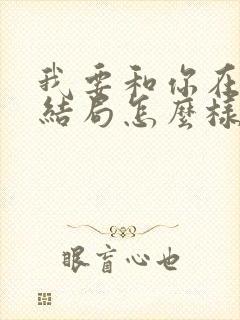 我要和你在
結局怎麼樣
眼盲心也